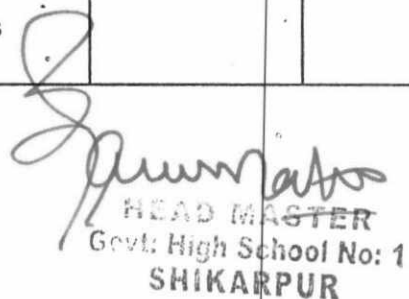 HEAD MASTER
Govt: High School No: 1
SHIKARPUR